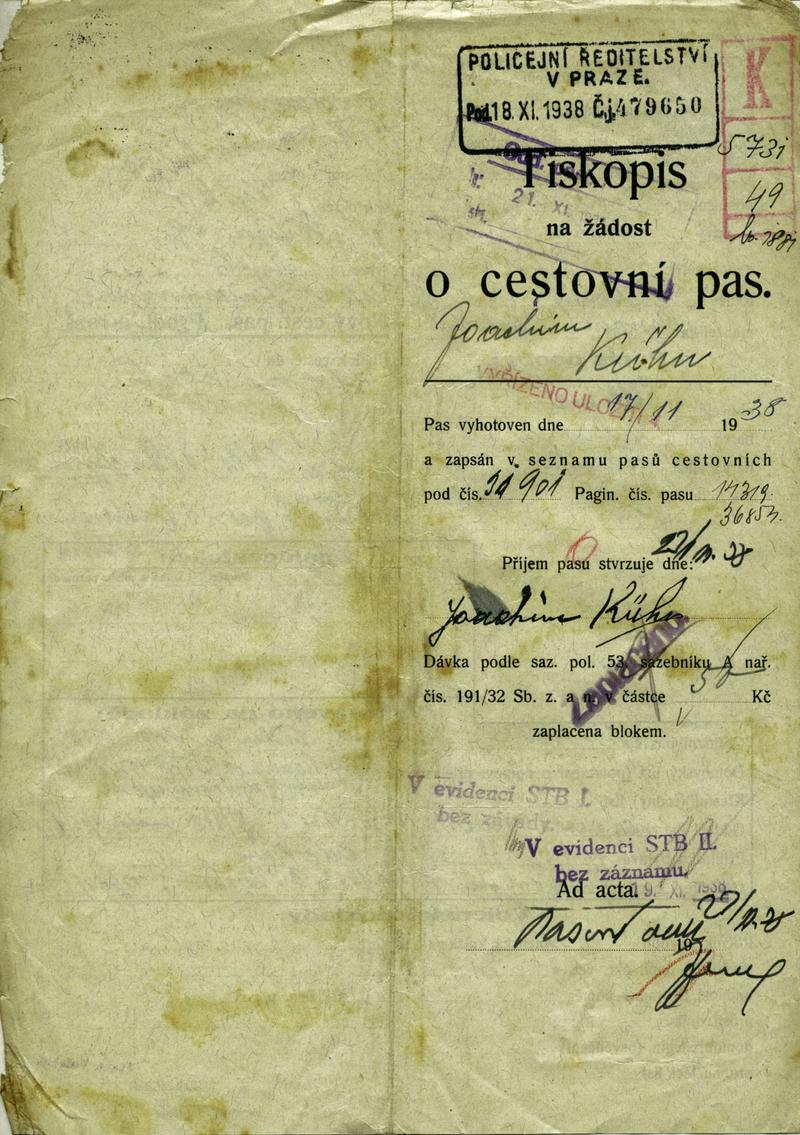 POLICEJNÍ ŘEDITELSTVÍ
V PRAZE.
Pod. 18. XI. 1938 Č.j. 479650
K
5731
49
21. XI.
Tiskopis
na žádost
o cestovní pas.
Joachim
Kühn
VYŘÍZENO ULOŽIT
Pas vyhotoven dne 17/11 1938
a zapsán v seznamu pasů cestovních
pod čís. 31901 Pagin. čís. pasu 14319
36853
Příjem pasu stvrzuje dne:
Joachim Kühn
Dávka podle saz. pol. 53, sazebníku A nař.
čís. 191/32 Sb. z. a n. v částce 50 Kč
Zaplaceno.
zaplacena blokem.
V evidenci STB I.
bez závady.
V evidenci STB II.
bez záznamu.
Ad acta. 19. XI. 1938
193